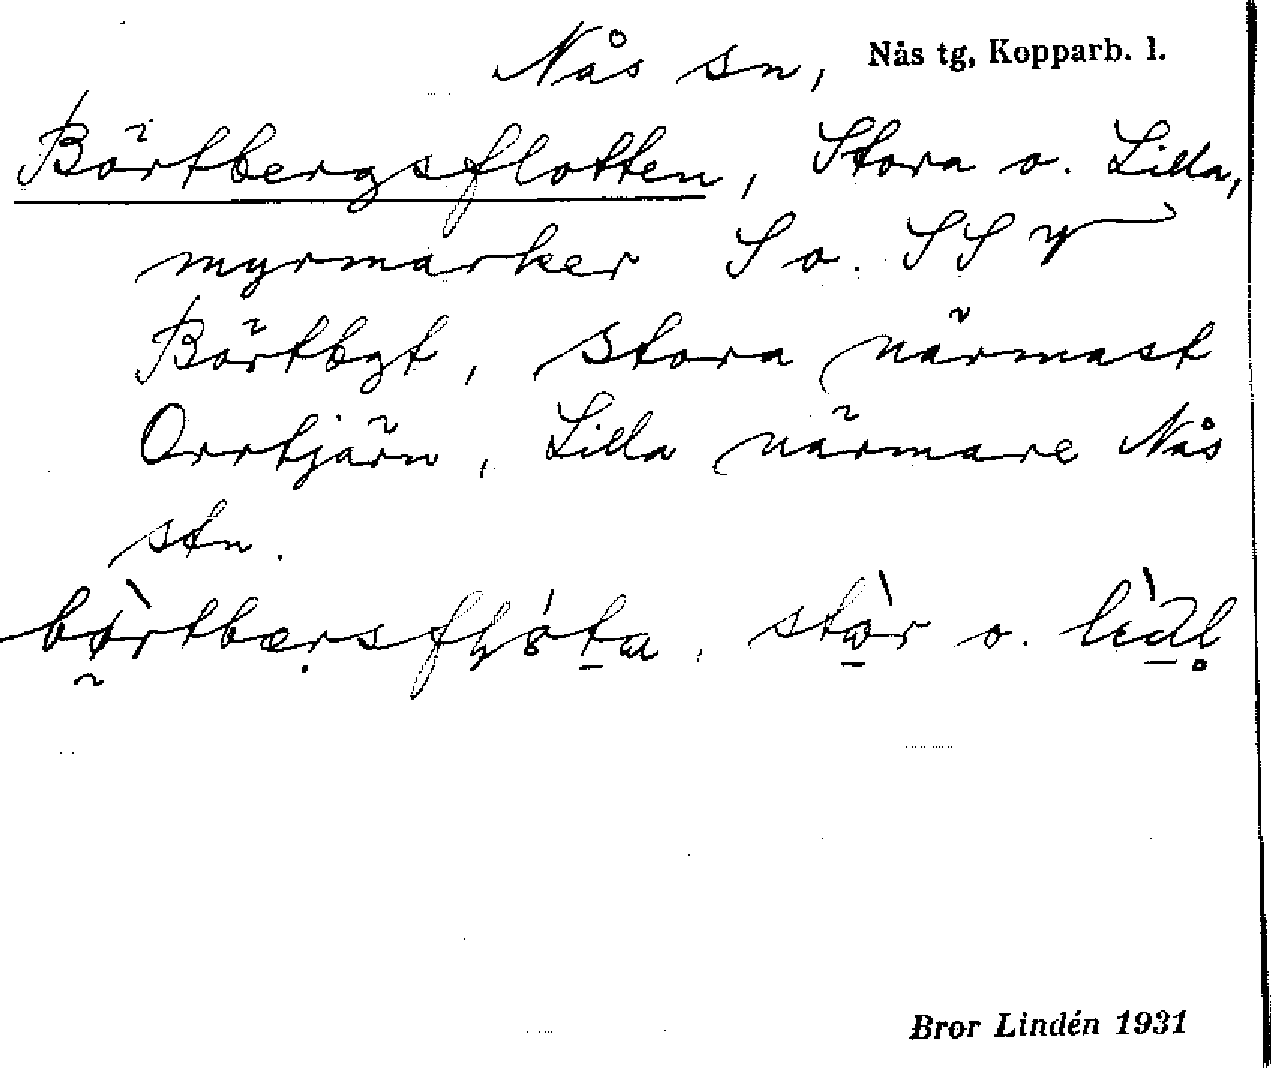 Nås sn, Nås tg, Kopparb. l.
Börtbergsflotten, Stora o. Lilla,
myrmarker S o. SSV
Börtbgt, Stora närmast
Orrtjärn, Lilla närmare Nås
stn.
stòr o.
Bror Lindén 1931